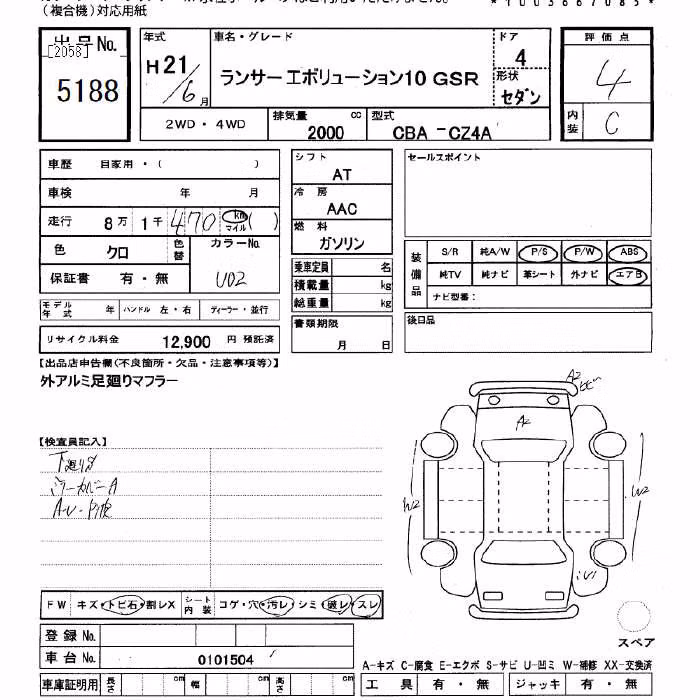 （複合機）対応用紙
*1003667085*
出品No.
[2058]
5188
年式
H21/6月
車名・グレード
ランサーエボリューション10 GSR
ドア
4
形状
セダン
評価点
4
内装
C
2WD・4WD
排気量 cc
2000
型式
CBA-CZ4A
車歴 自家用・( )
車検 年 月
走行 8万 1千 470 km マイル ( )
色 クロ
色替
カラーNo.
U02
保証書 有・無
モデル年式 年
ハンドル 左・右
ディーラー・並行
リサイクル料金 12,900 円 預託済
シフト
AT
冷房
AAC
燃料
ガソリン
乗車定員 名
積載量 kg
総重量 kg
書類期限
月 日
セールスポイント
装備品
S/R 純A/W P/S P/W ABS
純TV 純ナビ 革シート 外ナビ エアB
ナビ型番：
後日品
【出品店申告欄(不良箇所・欠品・注意事項等)】
外アルミ足廻りマフラー
【検査員記入】
下廻りS
ミラーカバーA
A2
A2
W2
W2
U1
FW キズ・トビ石・割レX
シート内装 コゲ・穴・汚レ・シミ・破レ・スレ
登録No.
車台No. 0101504
車庫証明用 長さ cm 幅 cm 高さ cm
スペア
A-キズ C-腐食 E-エクボ S-サビ U-凹ミ W-補修 XX-交換済
工具 有・無 ジャッキ 有・無